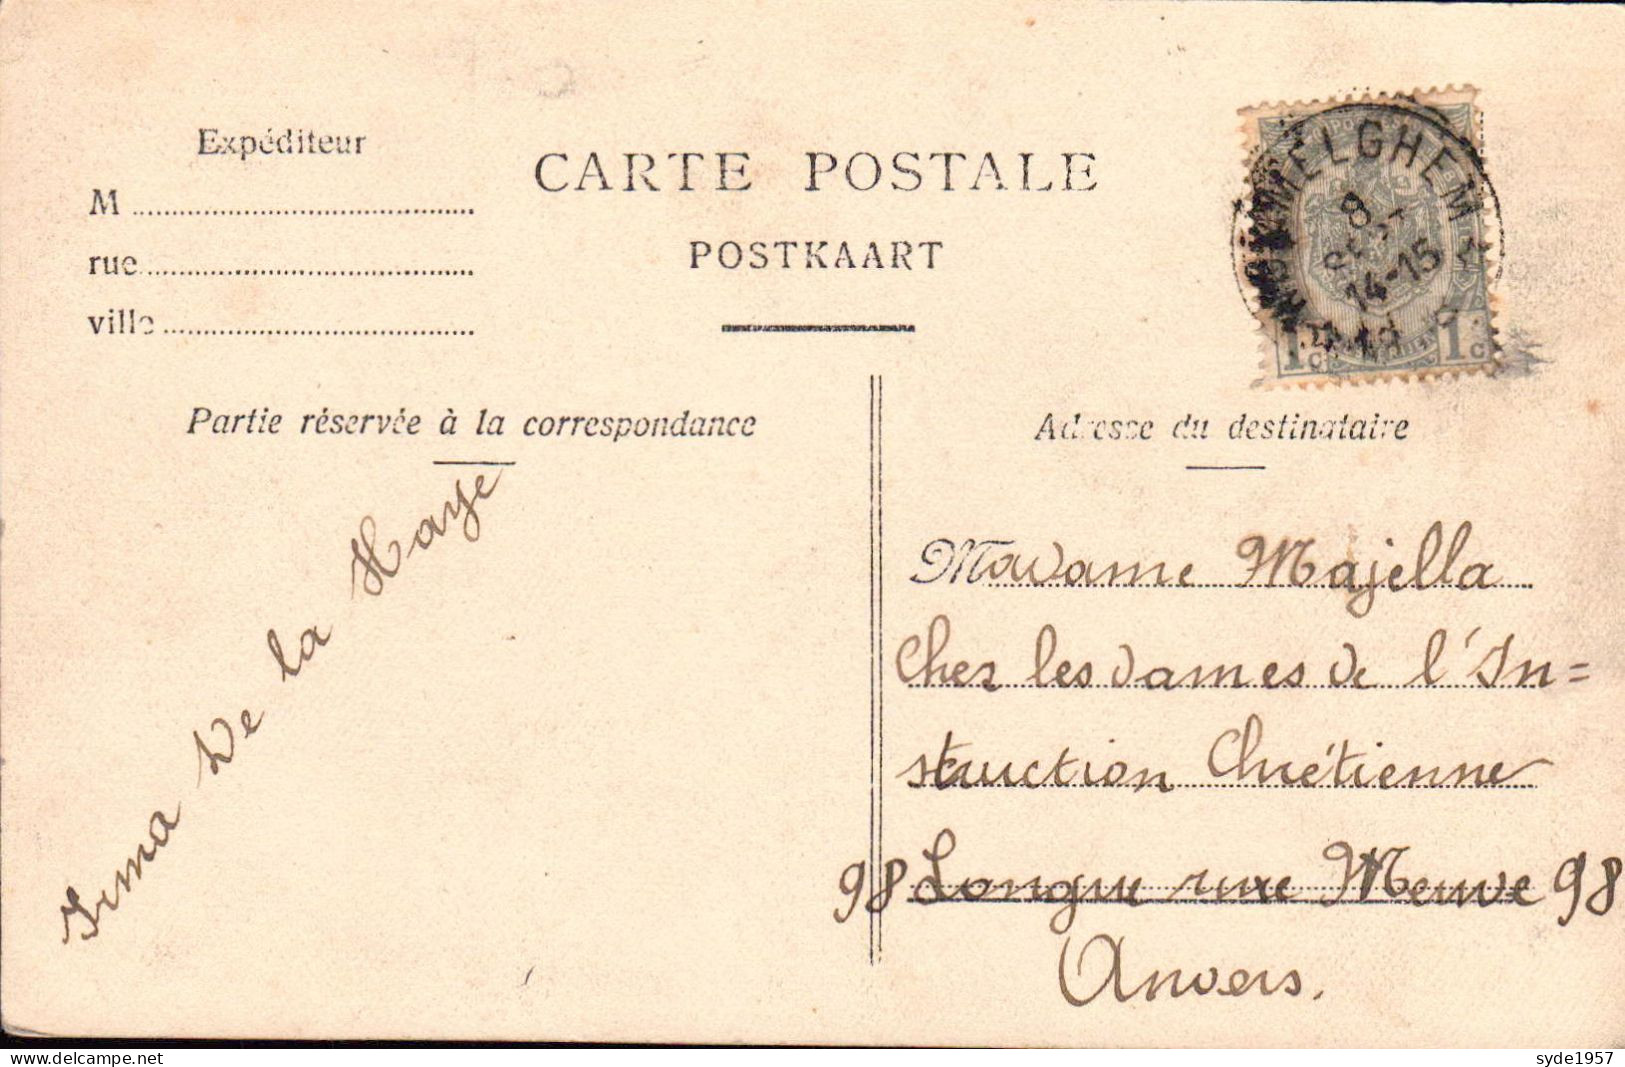 Expéditeur
M
rue
ville
CARTE POSTALE
POSTKAART
MELGHEM
8
14-15
1c 1c
Partie réservée à la correspondance
Adresse du destinataire
Irma De la Haye
Madame Majella
Chez les dames de l'In=
struction Chrétienne
98 Longue rue Neuve 98
Anvers.
syde1957